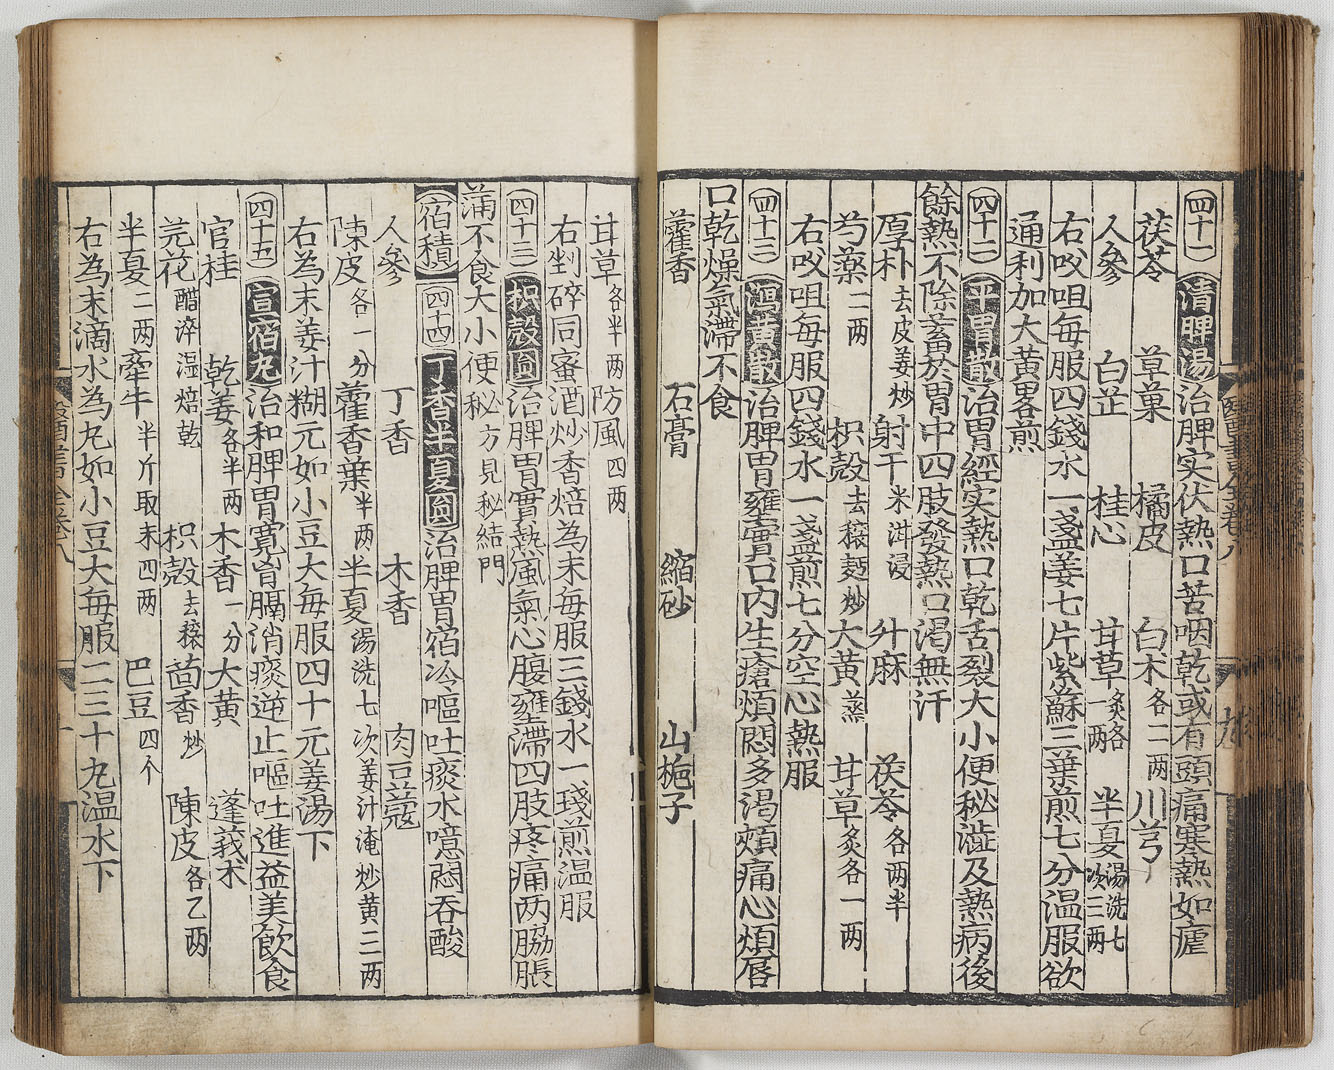 四十一 清脾湯 治脾实伏熱口苦咽乾或有頭痛寒熱如瘧
茯苓 草菓 橘皮 白术各二两 川芎
人參 白芷 桂心 甘草炙各一两 半夏湯洗七次三两
右㕮咀每服四錢水一盞姜七片紫蘇三葉煎七分温服欲
通利加大黄畧煎
四十二 平胃散 治胃經实熱口乾舌裂大小便秘澁及熱病後
餘熱不除蓄於胃中四肢發熱口渴無汗
厚朴去皮姜炒 射干米泔浸 升麻 茯苓各两半
芍薬二两 枳殻去穣麫炒 大黄蒸 甘草炙各一两
右㕮咀每服四錢水一盞煎七分空心熱服
四十三 瀉黄散 治脾胃壅實口内生瘡煩悶多渴頰痛心煩唇
口乾燥氣滞不食
藿香 石膏 縮砂 山梔子
甘草各半两 防風四两
右剉碎同蜜酒炒香焙為末每服三錢水一琖煎温服
四十三 枳殻圓 治脾胃實熱風氣心腹壅滞四肢疼痛两脇脹
满不食大小便秘方見秘結門
宿積 四十四 丁香半夏圓 治脾胃宿冷嘔吐痰水噫悶吞酸
人參 丁香 木香 肉豆蔻
陳皮各一分 藿香葉半两 半夏湯洗七次姜汁淹炒黄三两
右為末姜汁糊元如小豆大每服四十元姜湯下
四十五 宣宿丸 治和脾胃寛胷膈消痰逆止嘔吐進益美飲食
官桂 乾姜各半两 木香一分 大黄 蓬莪术
芫花醋淬湿焙乾 枳殻去穣 茴香炒 陳皮各乙两
半夏二两 牽牛半斤取末四两 巴豆四个
右為末滴水為丸如小豆大每服二三十丸温水下